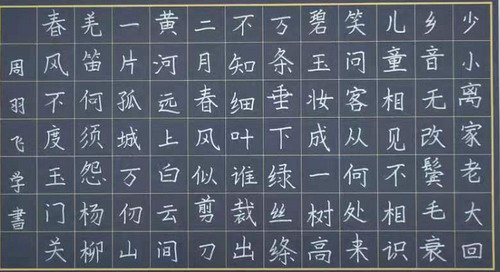 少小离家老大回
乡音无改鬓毛衰
儿童相见不相识
笑问客从何处来
碧玉妆成一树高
万条垂下绿丝绦
不知细叶谁裁出
二月春风似剪刀
黄河远上白云间
一片孤城万仞山
羌笛何须怨杨柳
春风不度玉门关
周羽飞学書